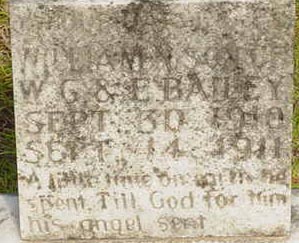 WILLIAM SON OF
W.G. & E. BAILEY
SEPT. 30 1910
SEPT. 14 1911
A little time on earth he
spent, Till God for him
his angel sent